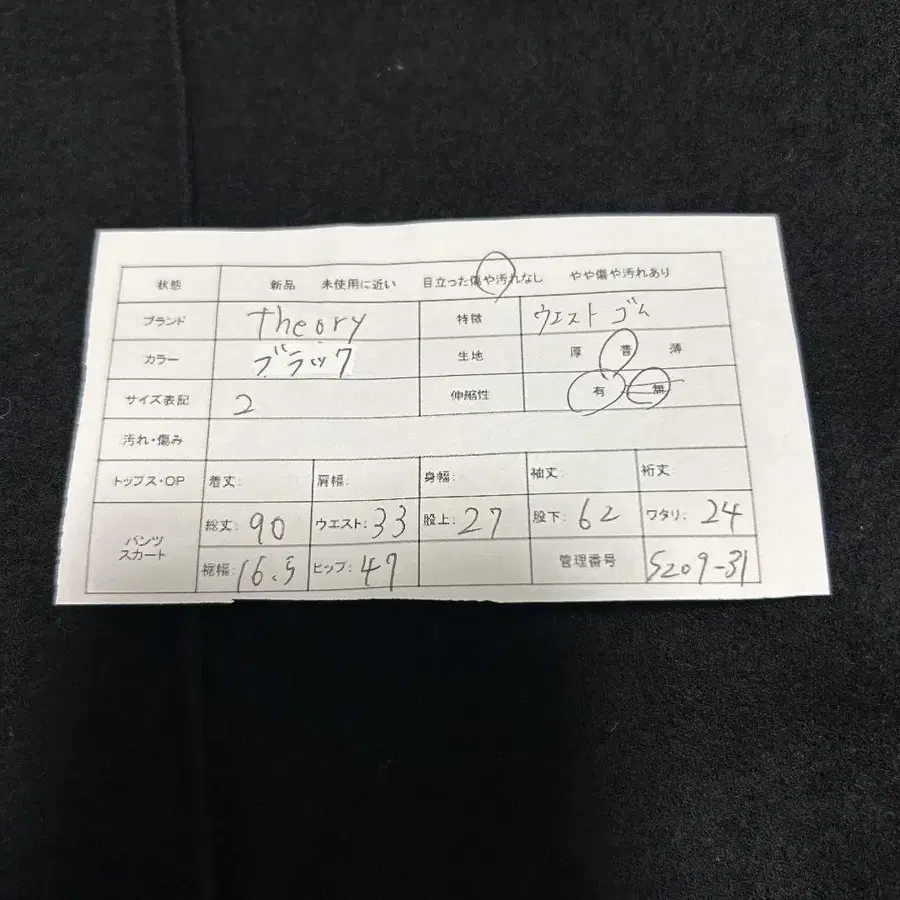 状態 新品 未使用に近い 目立った傷や汚れなし やや傷や汚れあり
ブランド theory 特徴 ウエストゴム
カラー ブラック 生地 厚 普 薄
サイズ表記 2 伸縮性 有 無
汚れ・傷み
トップス・OP 着丈: 肩幅: 身幅: 袖丈: 裄丈:
パンツ スカート 総丈: 90 ウエスト: 33 股上: 27 股下: 62 ワタリ: 24
裾幅: 16.5 ヒップ: 47 管理番号 S209-31